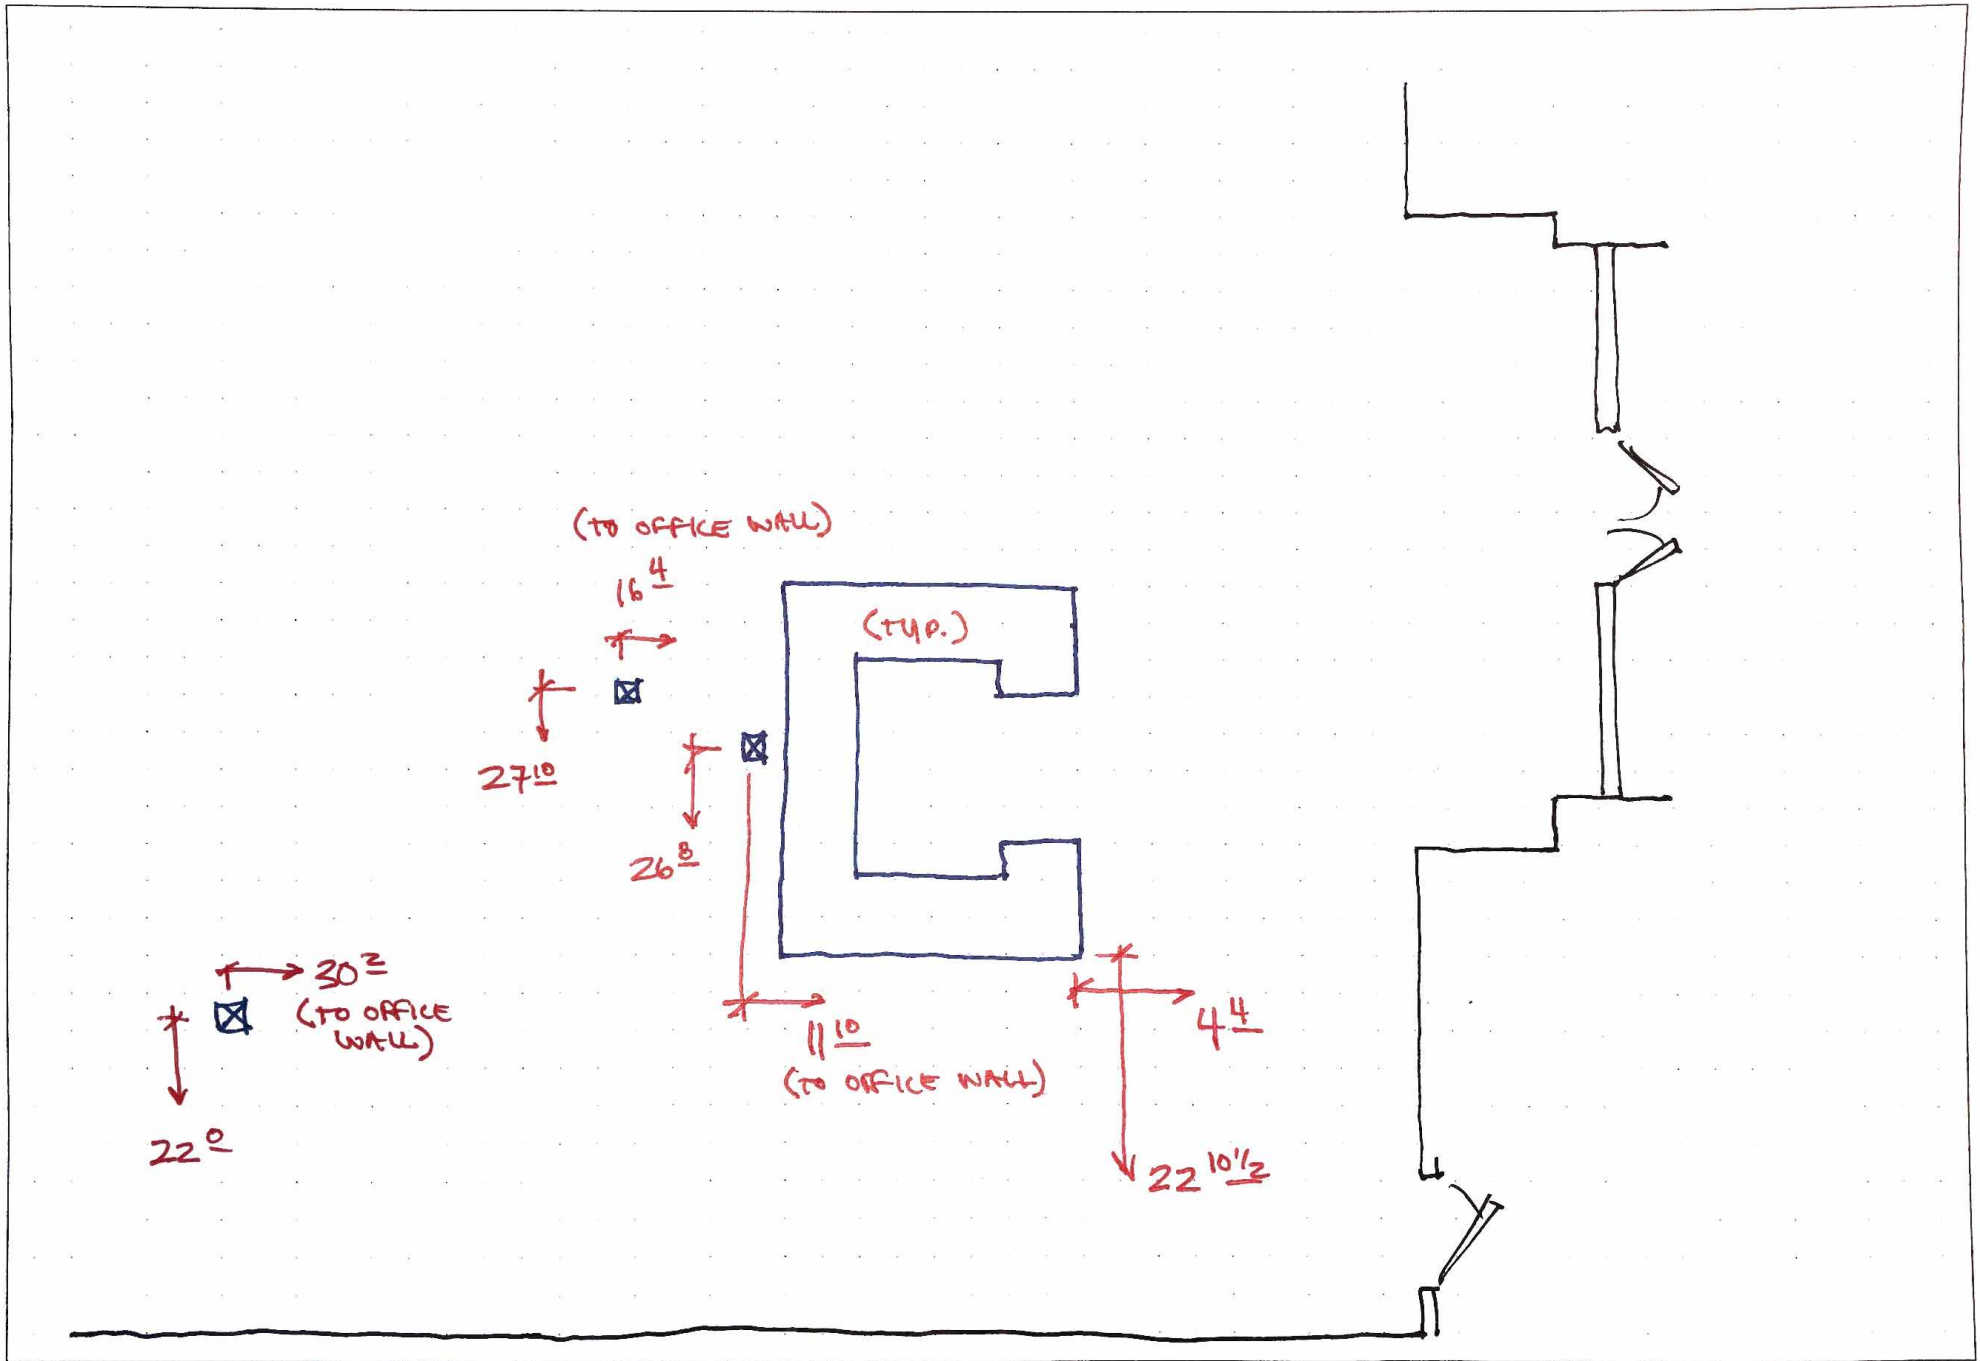 (TO OFFICE WALL)
16 4
(TYP.)
27 10
26 8
30 2
(TO OFFICE
WALL)
22 0
11 10
(TO OFFICE WALL)
4 4
22 10 1/2